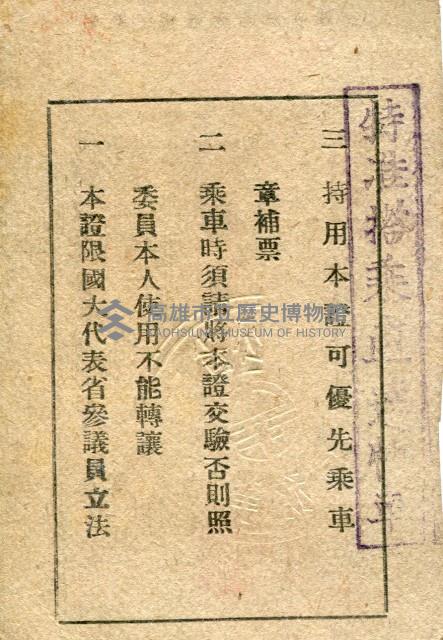 一 本證限國大代表省參議員立法
委員本人使用不能轉讓
二 乘車時須請將本證交驗否則照
章補票
三 持用本證可優先乘車
特准搭乘
高雄市立歷史博物館
KAOHSIUNG MUSEUM OF HISTORY